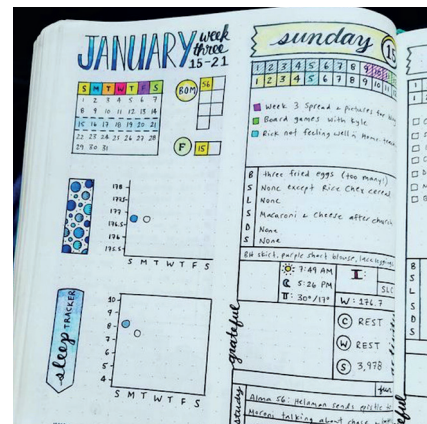 JANUARY week three
15-21
S M T W T F S
1 2 3 4 5 6 7
8 9 10 11 12 13 14
15 16 17 18 19 20 21
22 23 24 25 26 27 28
29 30 31
BOM 56
F 15
178
177.5
177
176.5
176
175.5
S M T W T F S
sleep TRACKER
10
9
8
7
6
5
4
S M T W T F S
sunday 15
1 2 3 4 5 6 7 8 9 10
1 2 3 4 5 6 7 8 9 10
Week 3 Spread + pictures for
Board games with Kyle
Rick not feeling well
B three fried eggs (too many!)
S None except Rice Chex cereal
L None
S Macaroni & cheese after church
D None
S None
BH skirt, purple short blouse,
7:49 AM
5:26 PM
30°/17°
W: 176.7
C REST
W REST
S 3,978
grateful
study
Alma 56: Helaman sends epistle to
Moroni talking about